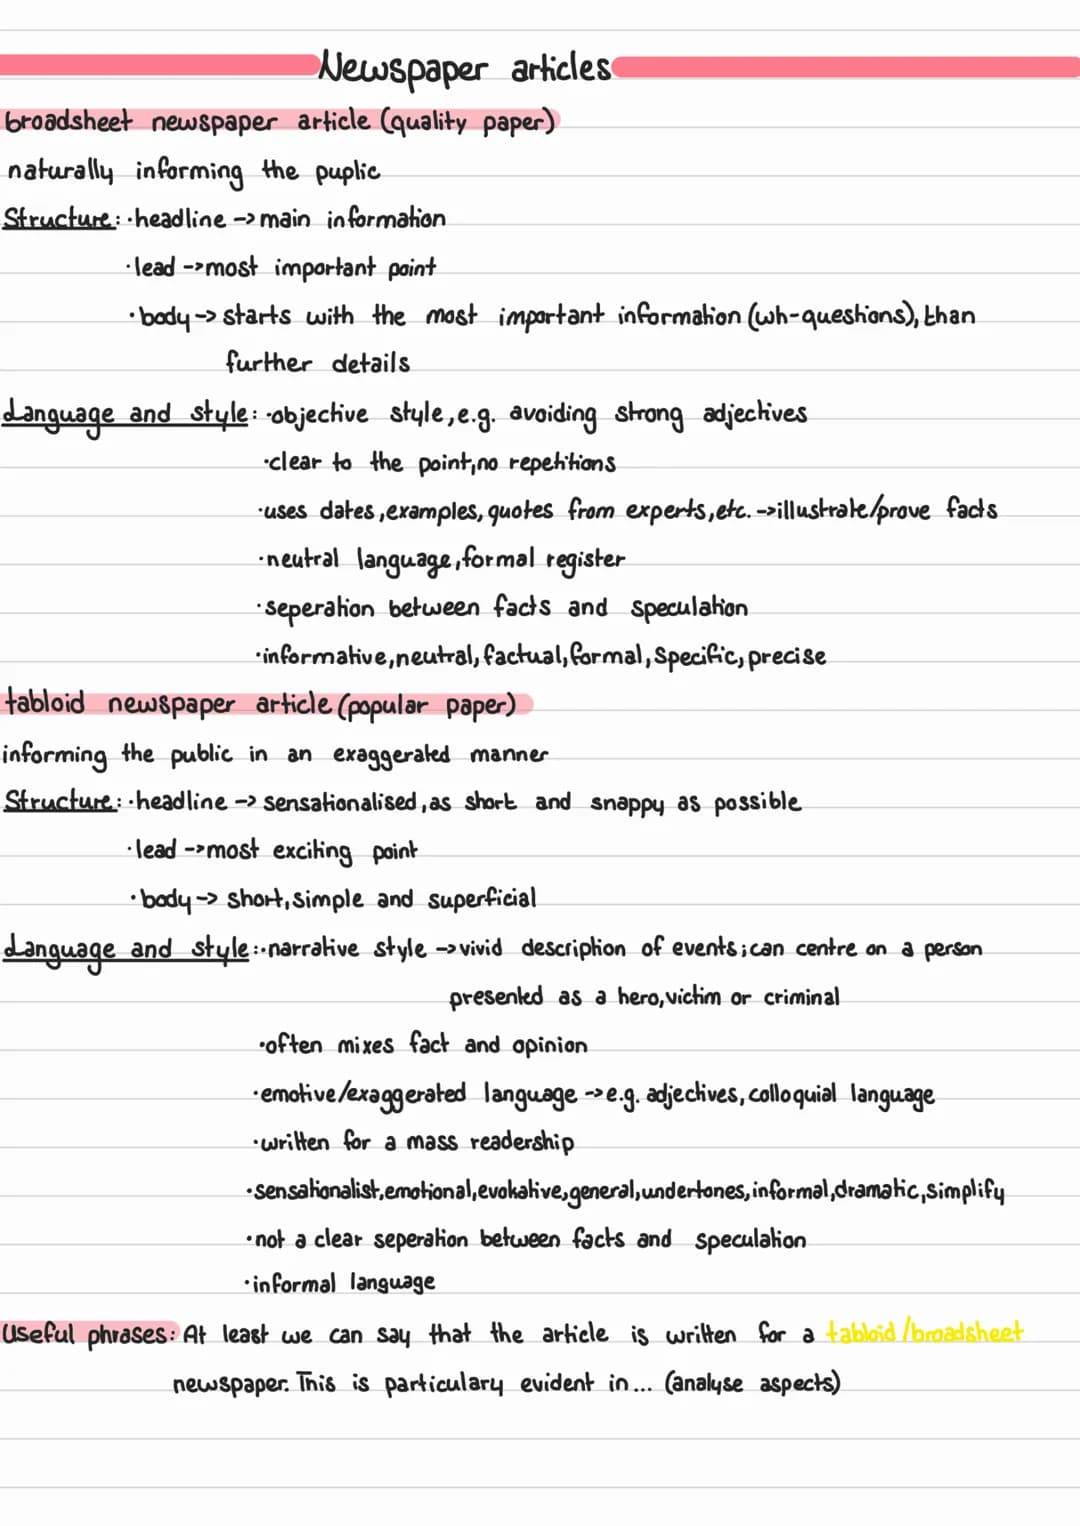 Newspaper articles
broadsheet newspaper article (quality paper)
naturally informing the puplic
Structure: ·headline -> main information
·lead -> most important point
·body -> starts with the most important information (wh-questions), than
further details
Language and style: ·objective style, e.g. avoiding strong adjectives
·clear to the point, no repetitions
·uses dates, examples, quotes from experts, etc. -> illustrate/prove facts
·neutral language, formal register
·seperation between facts and speculation
·informative, neutral, factual, formal, Specific, precise
tabloid newspaper article (popular paper)
informing the public in an exaggerated manner
Structure: ·headline -> sensationalised, as short and snappy as possible
·lead -> most exciting point
·body -> short, simple and superficial
Language and style: ·narrative style -> vivid description of events; can centre on a person
presented as a hero, victim or criminal
·often mixes fact and opinion
·emotive/exaggerated language -> e.g. adjectives, colloquial language
·written for a mass readership
·sensationalist, emotional, evokative, general, undertones, informal, dramatic, simplify
·not a clear seperation between facts and speculation
·informal language
Useful phrases: At least we can say that the article is written for a tabloid/broadsheet
newspaper. This is particulary evident in... (analyse aspects)